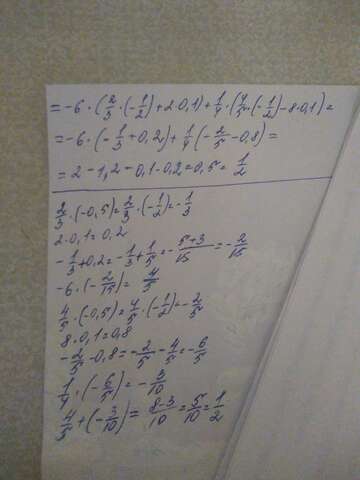 = -6 · (2/3 · (-1/2) + 2·0,1) + 1/4 · (4/5 · (-1/2) - 8·0,1) =
= -6 · (-1/3 + 0,2) + 1/4 (-2/5 - 0,8) =
= 2 - 1,2 - 0,1 - 0,2 = 0,5 = 1/2
2/3 · (-0,5) = 2/3 · (-1/2) = -1/3
2·0,1 = 0,2
-1/3 + 0,2 = -1/3 + 1/5 = -5+3/15 = -2/15
-6 · (-2/15) = 4/5
4/5 · (-0,5) = 4/5 · (-1/2) = -2/5
8·0,1 = 0,8
-2/5 - 0,8 = -2/5 - 4/5 = -6/5
1/4 · (-6/5) = -3/10
4/5 + (-3/10) = 8-3/10 = 5/10 = 1/2